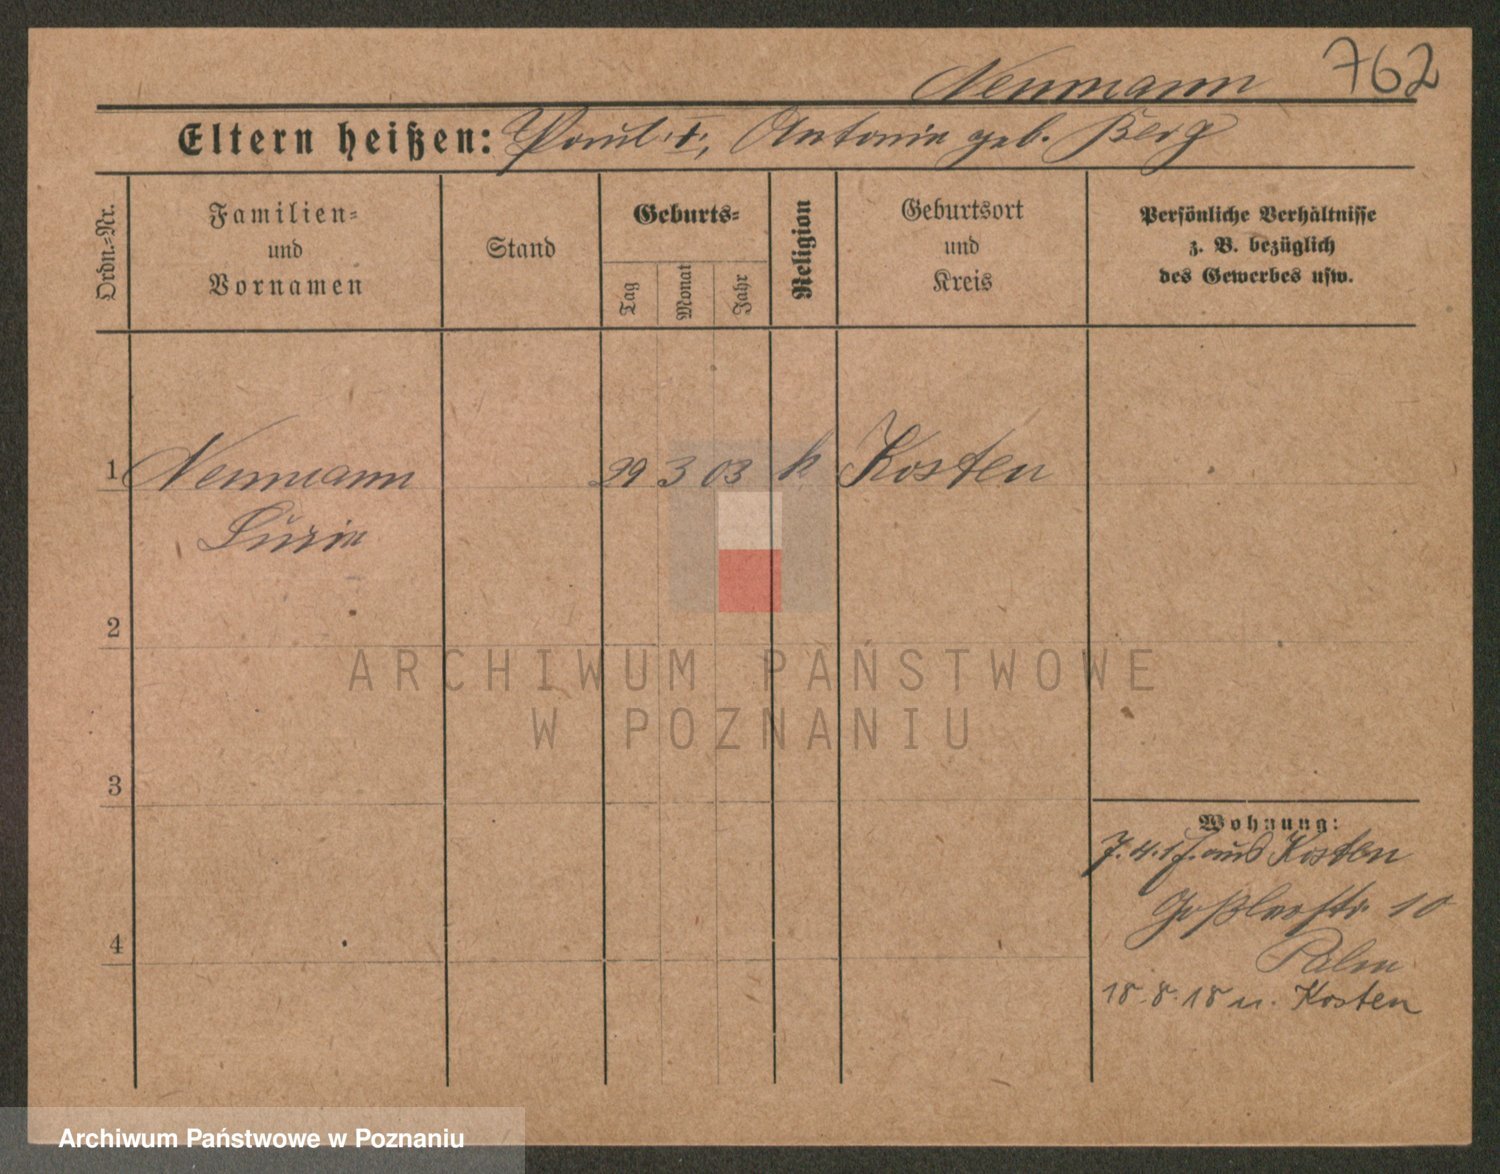 Neumann 762
Eltern heißen: Paul †, Antonie geb. Berg
Ordn.-Nr.
Familien-
und
Vornamen
Stand
Geburts-
Tag
Monat
Jahr
Religion
Geburtsort
und
Kreis
Persönliche Verhältnisse
z. B. bezüglich
des Gewerbes usw.
1 Neumann 29 3 03 k Kosten
Luzie
2
3
4
Wohnung:
7.4.17. aus Kosten
Goßlerstr. 10
18.8.18 n. Kosten
ARCHIWUM PAŃSTWOWE
W POZNANIU
Archiwum Państwowe w Poznaniu